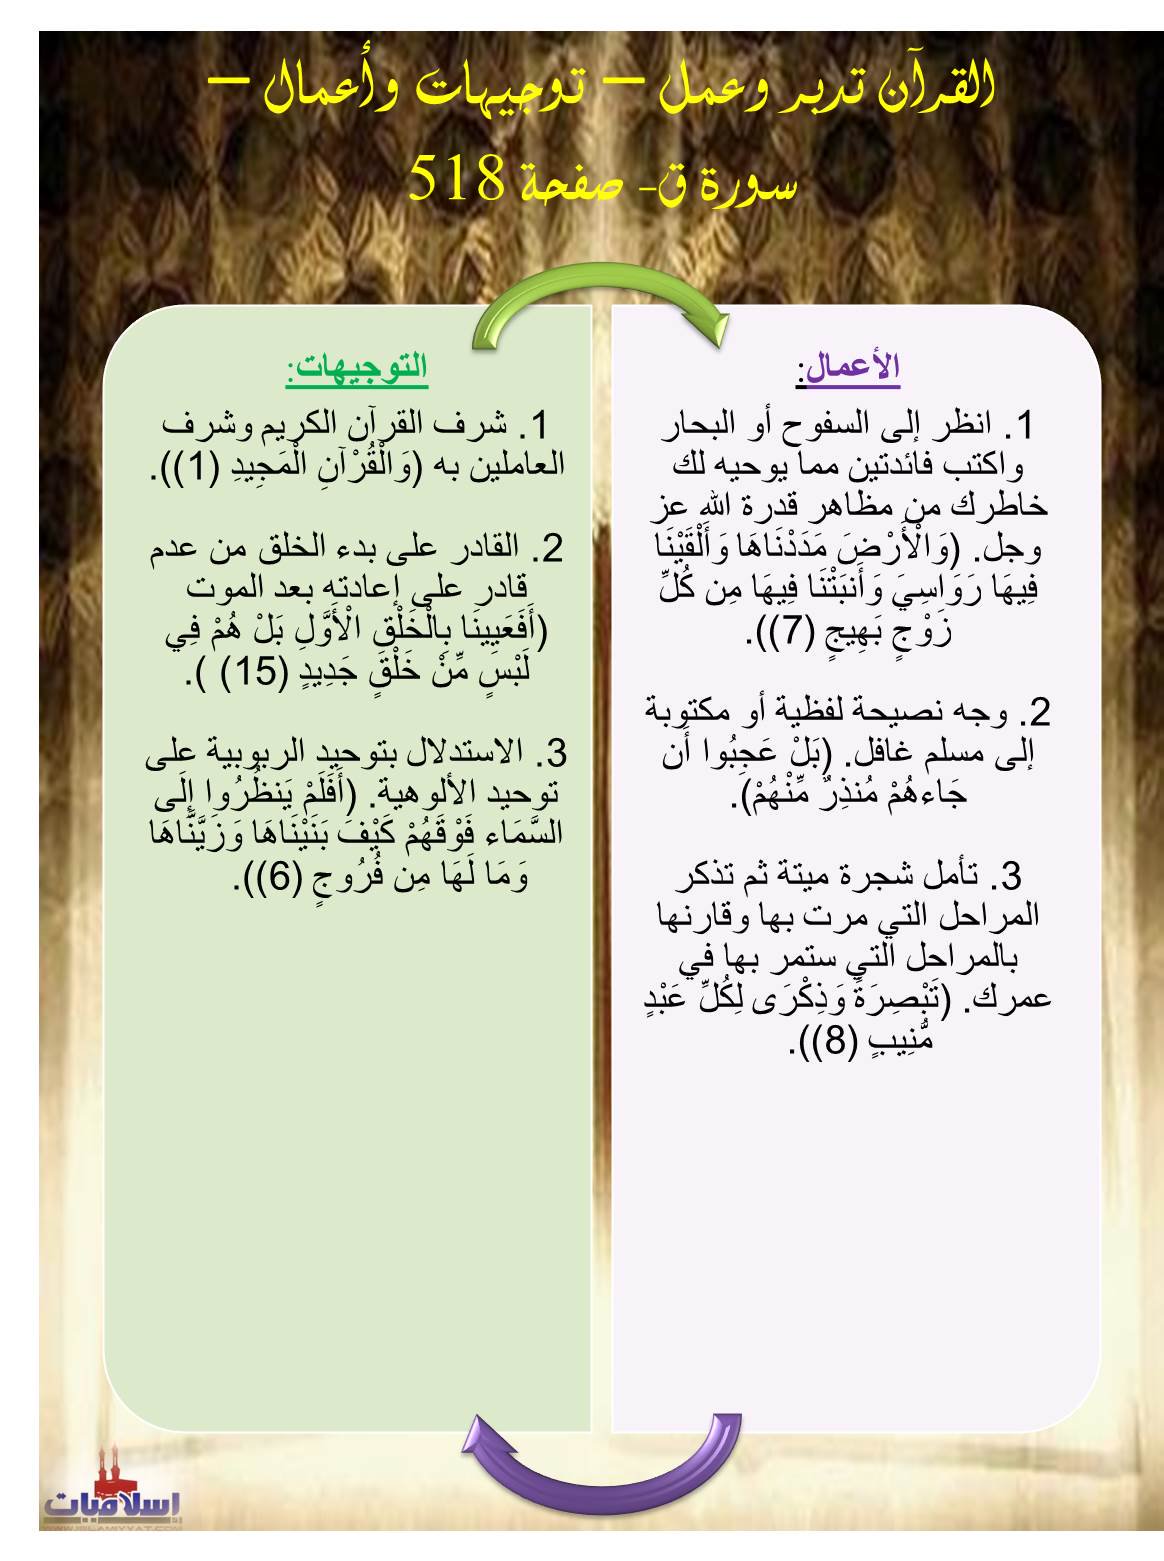 القرآن تدبر وعمل – توجيهات وأعمال –
سورة ق- صفحة 518
الأعمال:
1. انظر إلى السفوح أو البحار
واكتب فائدتين مما يوحيه لك
خاطرك من مظاهر قدرة الله عز
وجل. (وَالْأَرْضَ مَدَدْنَاهَا وَأَلْقَيْنَا
فِيهَا رَوَاسِيَ وَأَنبَتْنَا فِيهَا مِن كُلِّ
زَوْجٍ بَهِيجٍ (7)).
2. وجه نصيحة لفظية أو مكتوبة
إلى مسلم غافل. (بَلْ عَجِبُوا أَن
جَاءهُمْ مُنذِرٌ مِّنْهُمْ).
3. تأمل شجرة ميتة ثم تذكر
المراحل التي مرت بها وقارنها
بالمراحل التي ستمر بها في
عمرك. (تَبْصِرَةً وَذِكْرَى لِكُلِّ عَبْدٍ
مُّنِيبٍ (8)).
التوجيهات:
1. شرف القرآن الكريم وشرف
العاملين به (وَالْقُرْآنِ الْمَجِيدِ (1)).
2. القادر على بدء الخلق من عدم
قادر على إعادته بعد الموت
(أَفَعَيِينَا بِالْخَلْقِ الْأَوَّلِ بَلْ هُمْ فِي
لَبْسٍ مِّنْ خَلْقٍ جَدِيدٍ (15) ).
3. الاستدلال بتوحيد الربوبية على
توحيد الألوهية. (أَفَلَمْ يَنظُرُوا إِلَى
السَّمَاء فَوْقَهُمْ كَيْفَ بَنَيْنَاهَا وَزَيَّنَّاهَا
وَمَا لَهَا مِن فُرُوجٍ (6)).
إسلاميات
WWW.ISLAMIYYAT.COM